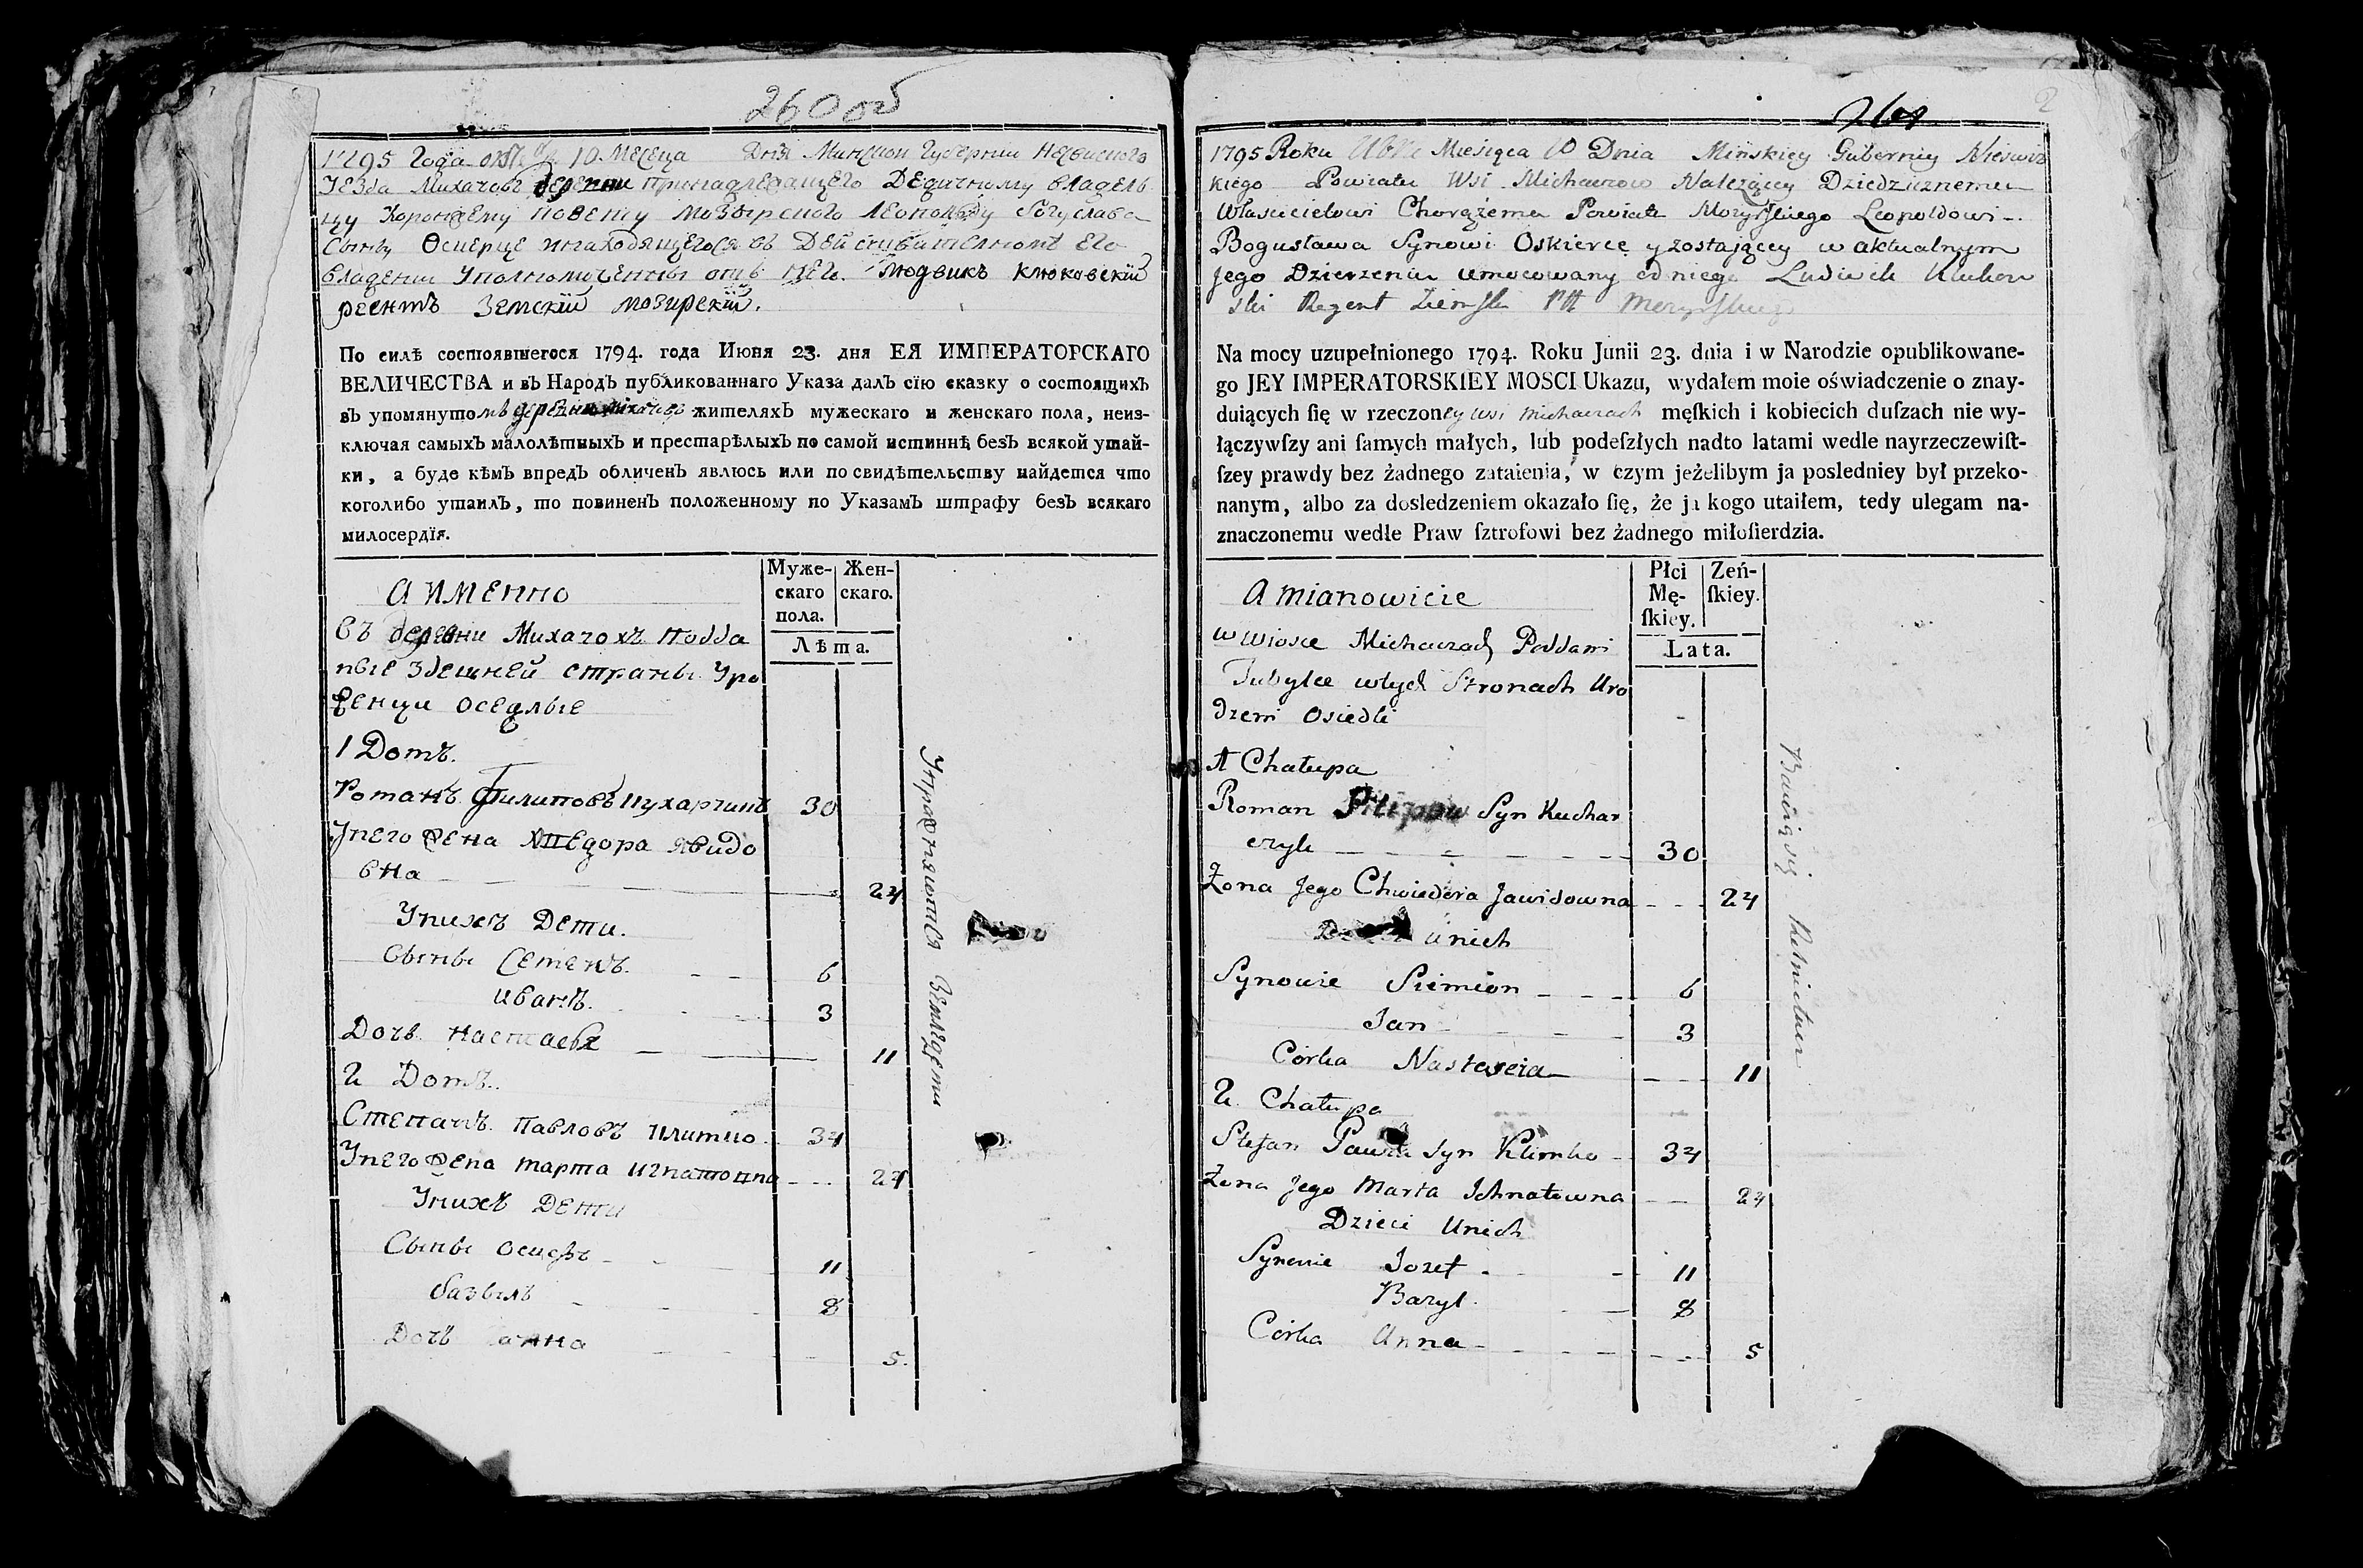 260 об
1795 года 10 Месеца Дня Минской Губернии Несвиского
Уезда Михачовъ деревни принадлежащего Дедичному владель
цу Хоронжему повету Мозырского Леополду Богуслава
Сыну Оскерце инаходящегося въ Действителномъ Его
владении Уполномоченный отъ Него Людвикъ Клюковский
реентъ Земский мозирский.
По силѣ состоявшегося 1794. года Июня 23. дня ЕЯ ИМПЕРАТОРСКАГО
ВЕЛИЧЕСТВА и въ Народъ публикованнаго Указа далъ сїю сказку о состоящихъ
въ упомянутомъ деревни жителяхъ мужескаго и женскаго пола, неиз-
ключая самыхъ малолѣтныхъ и престарѣлыхъ по самой истиннѣ безъ всякой утай-
ки, а буде кѣмъ впредъ обличенъ явлюсь или по свидѣтельству найдется что
коголибо утаилъ, то повиненъ положенному по Указамъ штрафу безъ всякаго
милосердїя.
А ИМЕННО
Муже-
скаго
пола.
Жен-
скаго.
Лѣта.
Въ деревни Михачохъ подда
ные здешней страны Уро
женци оседлые
1 Домъ.
Романъ Филиповъ Кухарчикъ 30
Унего жена Хведора Явидо
вна 24
Унихъ Дети.
Сыны Семенъ. 6
Иванъ. 3
Дочь Настасья 11
2 Домъ.
Степанъ Павловъ Климко 34
Унего жена Марта Игнатовна 24
Унихъ Дети
Сыны Осифъ 11
базыль 8
Дочь анна 5.
Упражняются Земледети
261
2
1795 Roku Miesiąca 10 Dnia Mińskiey Guberniy Nieswiz
kiego Powiatu Wsi Michaczow Należącey Dziedzicznemu
Właścicielowi Chorążemu Powiatu Mozyrskiego Leopoldowi
Bogusława Synowi Oskierce y zostaiącey w aktualnym
jego Dzierzeniu umocowany od niego Ludwik Klukow
ski Regent Ziemski Ptt Mozyrskiego
Na mocy uzupełnionego 1794. Roku Junii 23. dnia i w Narodzie opublikowane-
go JEY IMPERATORSKIEY MOSCI Ukazu, wydałem moie oświadczenie o znay-
duiących ſię w rzeczoney wsi Michaczach męſkich i kobiecich duſzach nie wy-
łączywſzy ani ſamych małych, lub podeſzłych nadto latami wedle nayrzeczewiſt-
ſzey prawdy bez żadnego zataienia, w czym jeżelibym ja posledniey był przeko-
nanym, albo za dosledzeniem okazało ſię, że ja kogo utaiłem, tedy ulegam na-
znaczonemu wedle Praw ſztrofowi bez żadnego miłoſierdzia.
A mianowicie
Płci
Mę-
ſkiey.
Zeń-
ſkiey.
Lata.
w wiosce Michaczach Poddani
Tubylce wtych Stronach Uro
dzeni Osiedli
1 Chałupa
Roman Filippow Syn Kuchar
czyk 30
Zona Jego Chwiedora Jawidowna 24
unich
Synowie Siemion 6
Jan 3
Córka Nastazia 11
2. Chałupa
Stefan Pawła Syn Klimko 34
Zona Jego Marta Ichnatowna 24
Dzieci Unich
Synowie Jozef 11
Bazyl 8
Córka Anna 5
Bawią się Rolnictwem